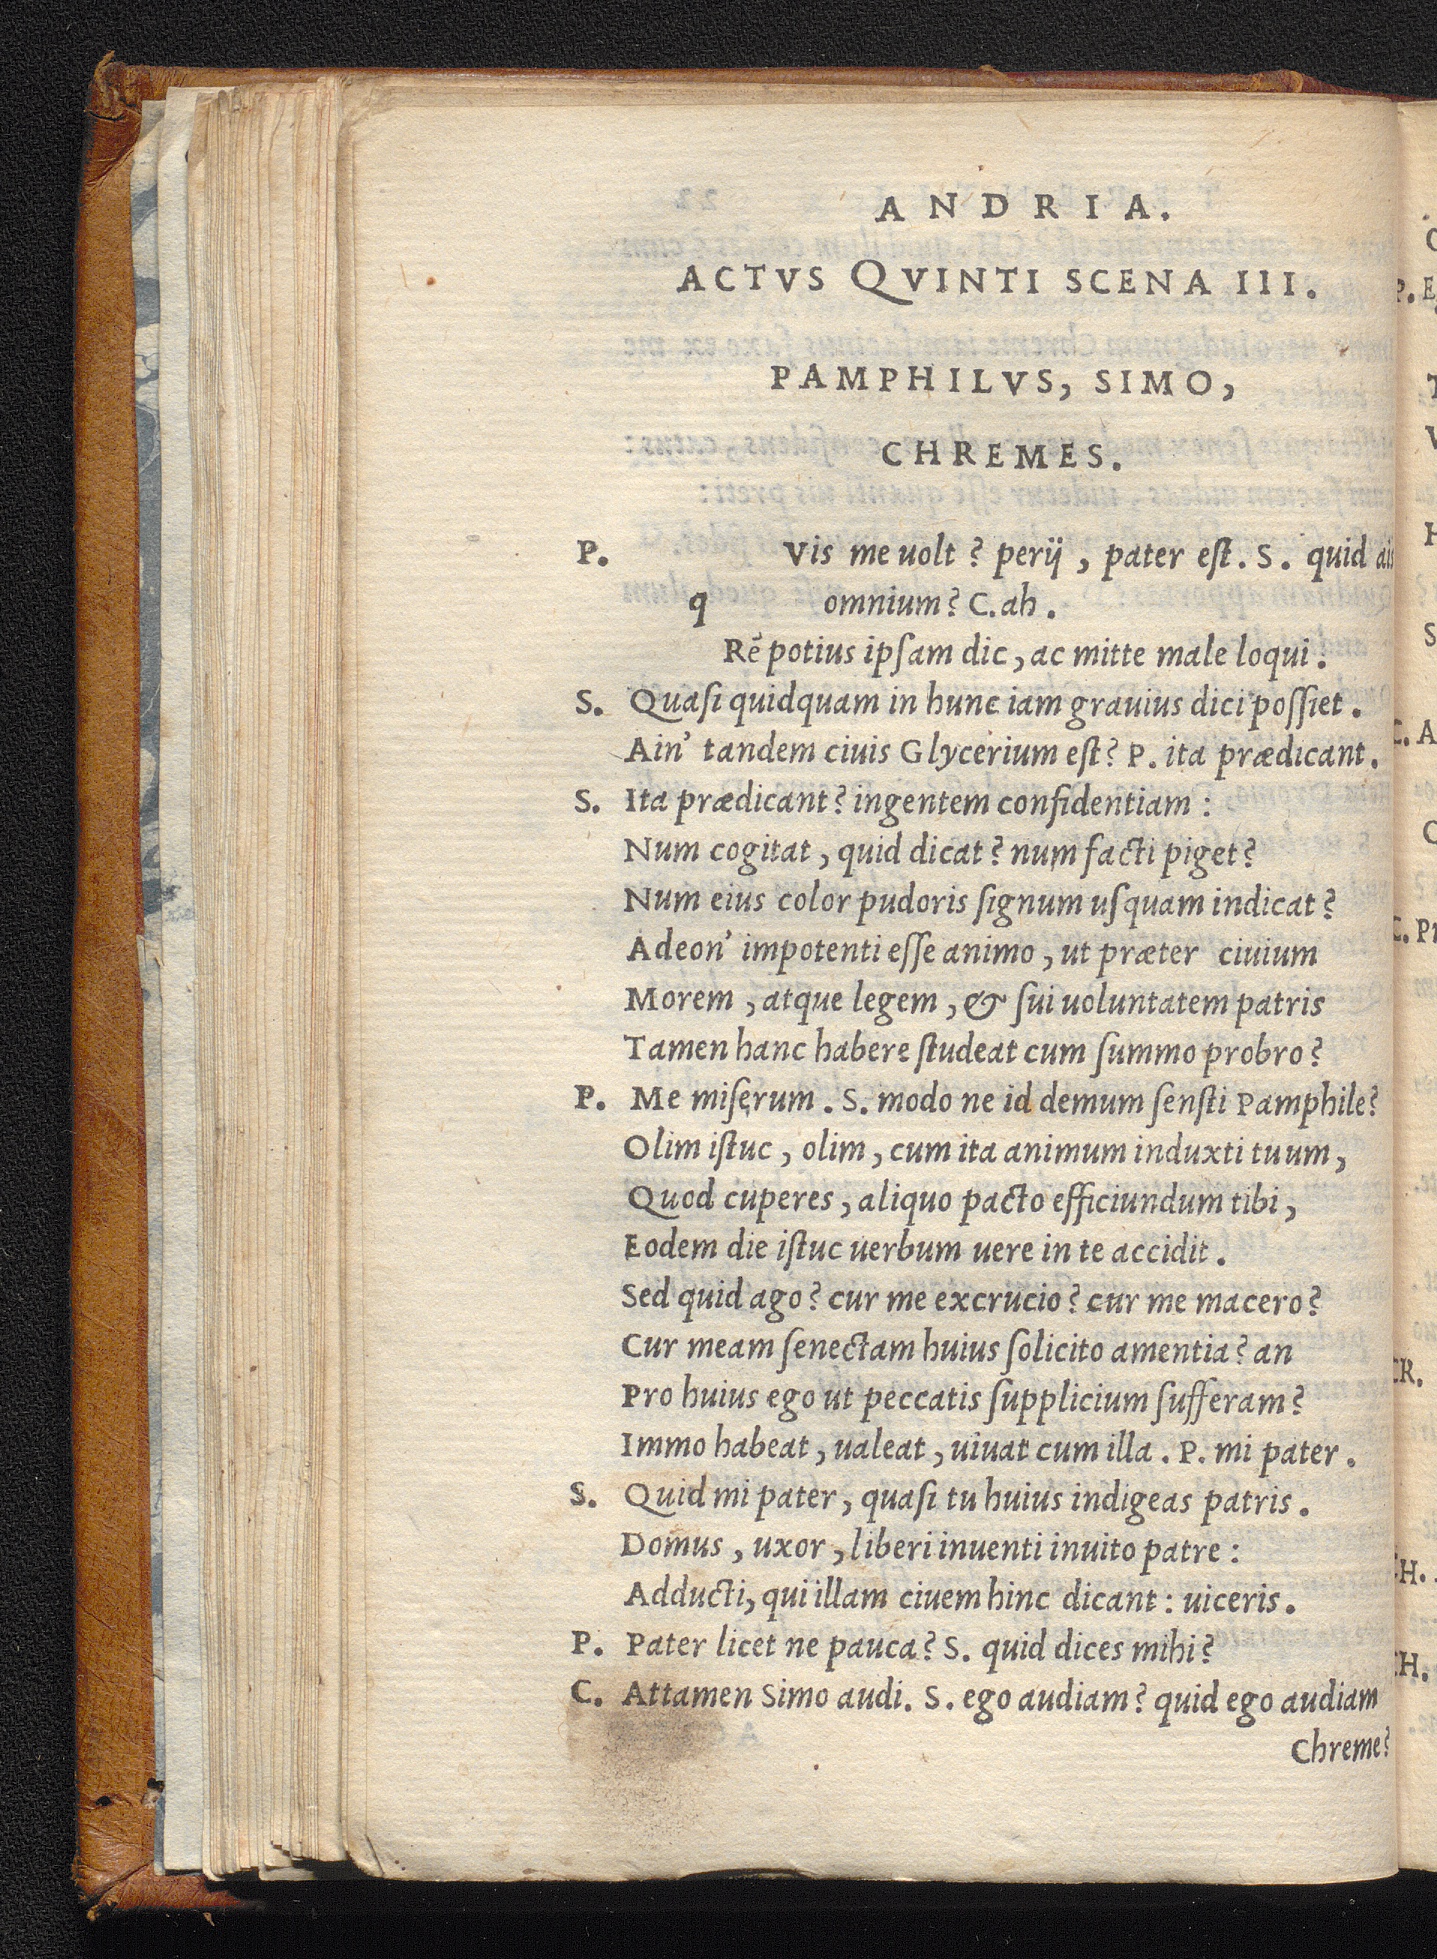 ANDRIA.
ACTVS QVINTI SCENA III.
PAMPHILVS, SIMO,
CHREMES.
P. Vis me uolt? perij, pater eſt. S. quid ais
q omnium? C. ah.
Rē potius ipſam dic, ac mitte male loqui.
S. Quaſi quidquam in hunc iam grauius dici poſſiet.
Ain' tandem ciuis Glycerium eſt? P. ita prædicant.
S. Ita prædicant? ingentem confidentiam:
Num cogitat, quid dicat? num facti piget?
Num eius color pudoris ſignum uſquam indicat?
Adeon' impotenti eſſe animo, ut præter ciuium
Morem, atque legem, & ſui uoluntatem patris
Tamen hanc habere ſtudeat cum ſummo probro?
P. Me miſerum. S. modo ne id demum ſenſti Pamphile?
Olim iſtuc, olim, cum ita animum induxti tuum,
Quod cuperes, aliquo pacto efficiundum tibi,
Eodem die iſtuc uerbum uere in te accidit.
Sed quid ago? cur me excrucio? cur me macero?
Cur meam ſenectam huius ſolicito amentia? an
Pro huius ego ut peccatis ſupplicium ſufferam?
Immo habeat, ualeat, uiuat cum illa. P. mi pater.
S. Quid mi pater, quaſi tu huius indigeas patris.
Domus, uxor, liberi inuenti inuito patre:
Adducti, qui illam ciuem hinc dicant: uiceris.
P. Pater licet ne pauca? S. quid dices mihi?
C. Attamen Simo audi. S. ego audiam? quid ego audiam
Chreme?